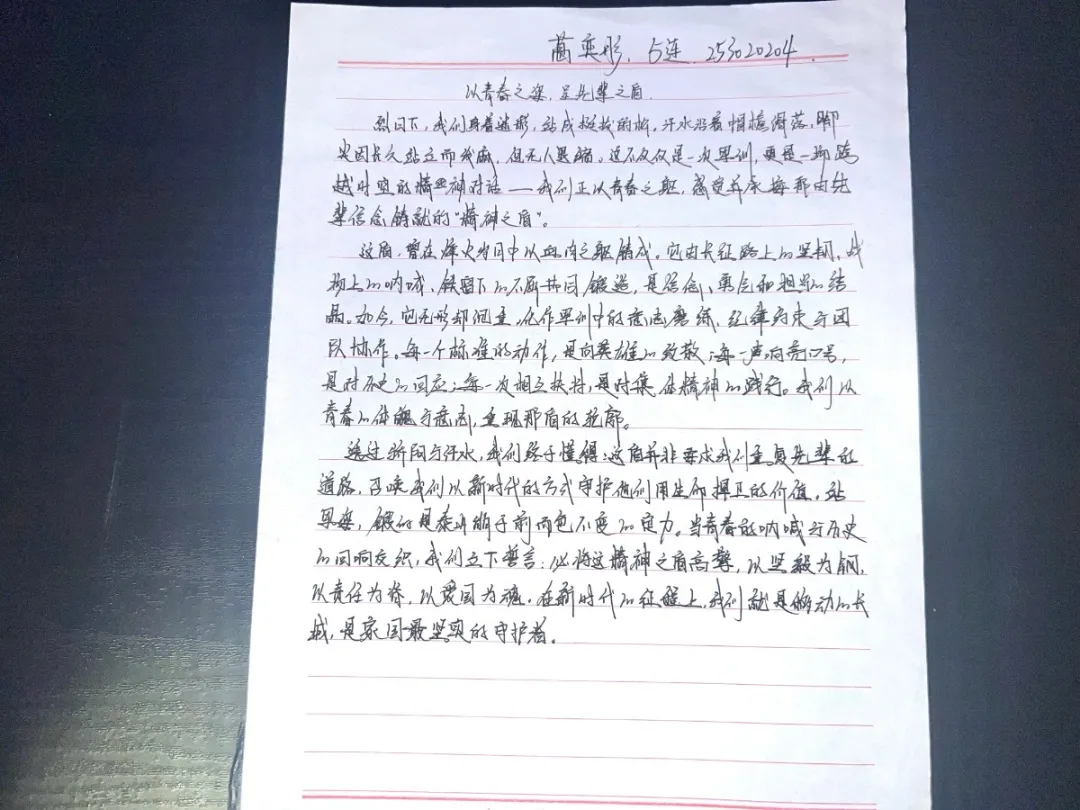 蔺奕彤. 5连. 25302024.
以青春之姿,呈先辈之盾.
烈日下,我们身着迷彩,站成挺拔的桩,汗水沿着帽檐滑落,脚
尖因长久站立而发麻,但无人退缩。这不仅仅是一次军训,更是一场跨
越时空的精神对话——我们正以青春之躯,感受并承接那由先
辈信念铸就的“精神之盾”。
这盾,曾在烽火岁月中以血肉之躯铸成。它由长征路上的坚韧、战
场上的呐喊、铁窗下的不屈共同锻造,是信念、勇气和担当的结
晶。如今,它无形却沉重,化作军训中的意志磨练、纪律约束与团
队协作。每一个标准的动作,是向英雄的致敬;每一声响亮口号,
是对历史的回应;每一次相互扶持,是对集体精神的践行。我们以
青春的体魄与意志,重现那盾的轮廓。
透过骄阳与汗水,我们终于懂得:这盾并非要求我们重复先辈的
道路,召唤我们以新时代的方式守护他们用生命捍卫的价值。站
军姿,锻的是泰山崩于前而色不变的定力。当青春的呐喊与历史
的回响交织,我们立下誓言:必将这精神之盾高擎,以坚毅为钢,
以责任为脊,以爱国为魂。在新时代的征程上,我们就是移动的长
城,是家国最坚实的守护者。